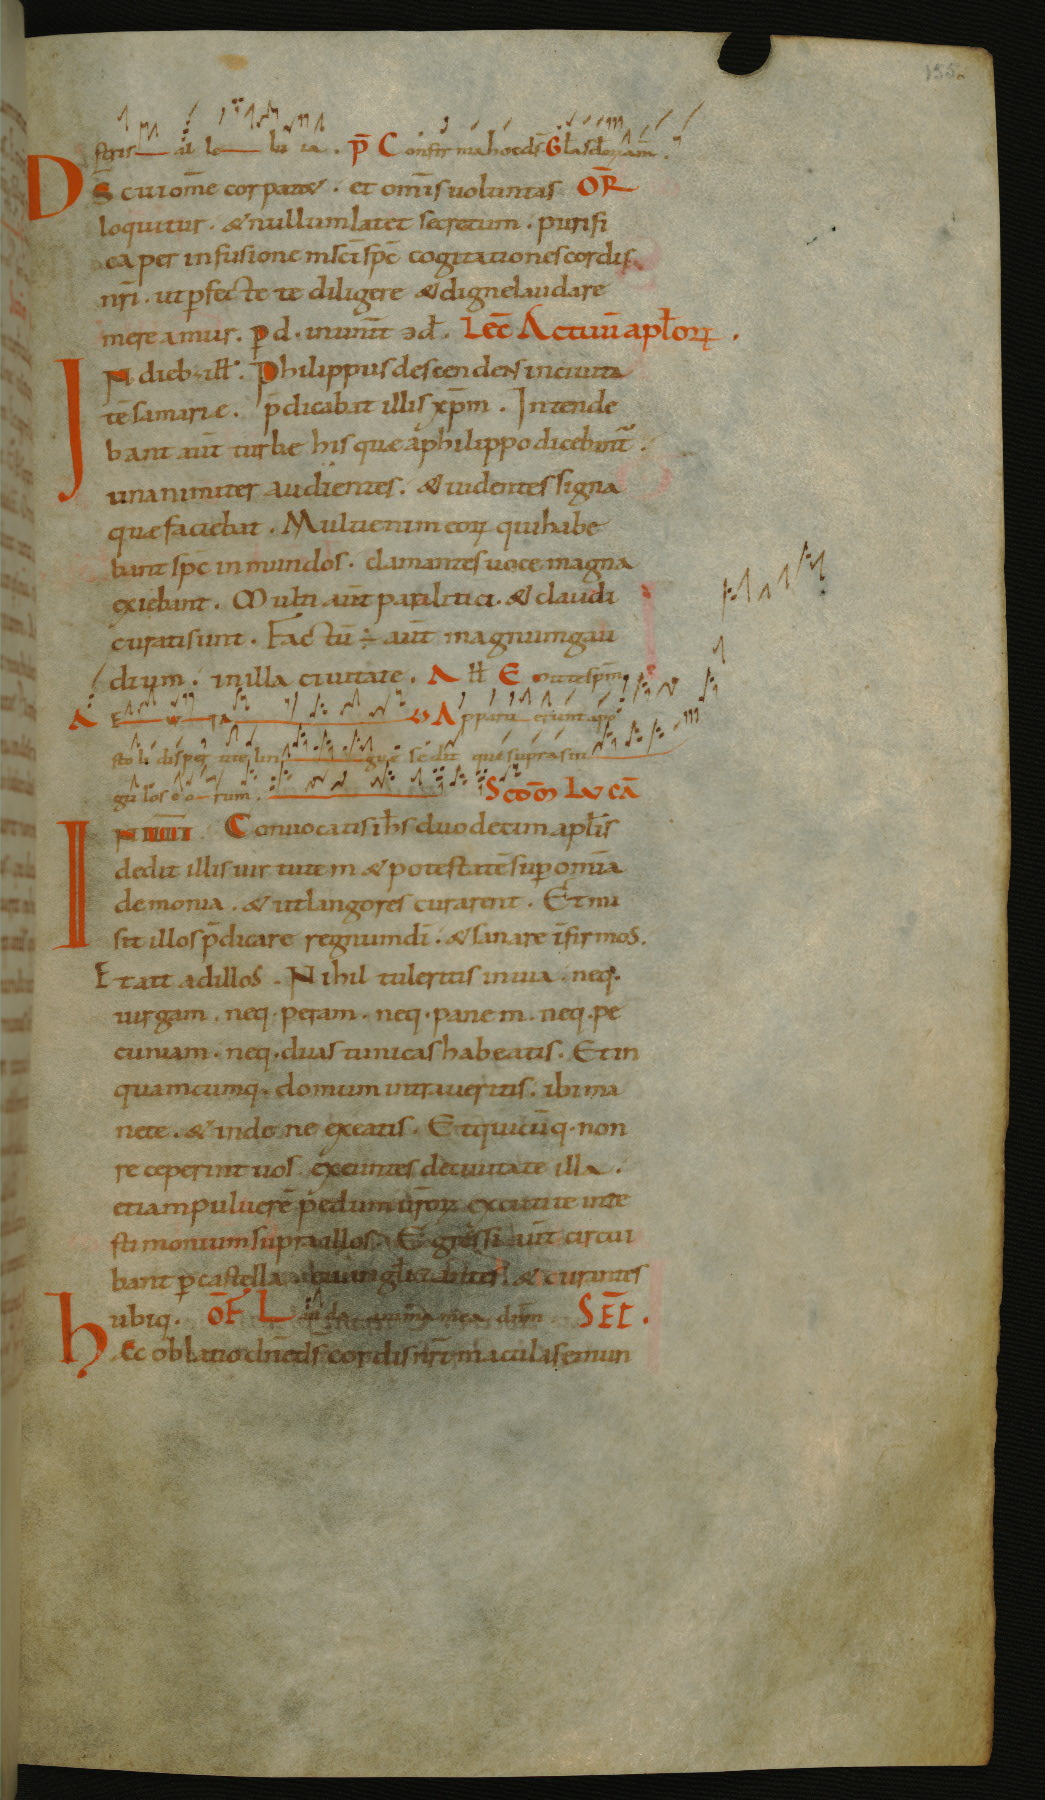 155a
stris al le lu ia . p̄ Confirma hoc ds̄ Gl̄a
Ds̄ cui om̄e cor patet . et om̄is uoluntas OR̄
loquitur . & nullum latet secretum . purifi
ca per infusionem sc̄i sp̄c cogitationes cordis
nr̄i . ut p̄fecte te diligere & digne laudare
mereamur . p d . in unit̄ Lec̄ Actuū apl̄oꝝ .
IN dieb; ill̄ . Philippus descendens in ciuita
tē samarie . p̄dicabat illis xp̄m . Intende
bant aūt turbe his quæ a philippo dicebant̄ .
unanimiter audientes . & uidentes signa
quæ faciebat . Multi enim eoꝝ qui habe
bant sp̄c inmundos . clamantes uoce magna
exiebant . Multi aūt paralitici . & claudi
curati sunt . Factū ÷ aūt magnum gau
dium . in illa ciuitate . A ll̄ Emitte sp̄m
A E u ia A pparu erunt apo
stoli disper tite lin guę sedit quę supra sin
gu los e o rum . Scdm̄ Lucā
IN illī Conuocatis ih̄s duodecim apl̄is
dedit illis uirtutem & potestatē sup̄ omīa
demonia . & ut langores curarent . Et mi
sit illos p̄dicare regnum dī . & sanare īfirmos .
Et ait ad illos . Nihil tuleritis in uia . neq .
uirgam . neq . peram . neq . panem . neq . pe
cuniam . neq . duas tunicas habeatis . Et in
quamcumq . domum intraueritis . ibi ma
nete . & inde ne exeatis . Et quicūq . non
receperint uos exeuntes de ciuitate illa .
etiam puluerē pedum ur̄oꝝ excutite in te
stimonium supra illos . Egressi aūt circui
bant p castella euangl̄izantes & curantes
ubiq . OF̄ Lauda anima mea dnm̄ . SEC̄ .
hEc oblatio dnē ds̄ cordis nr̄i maculas emun